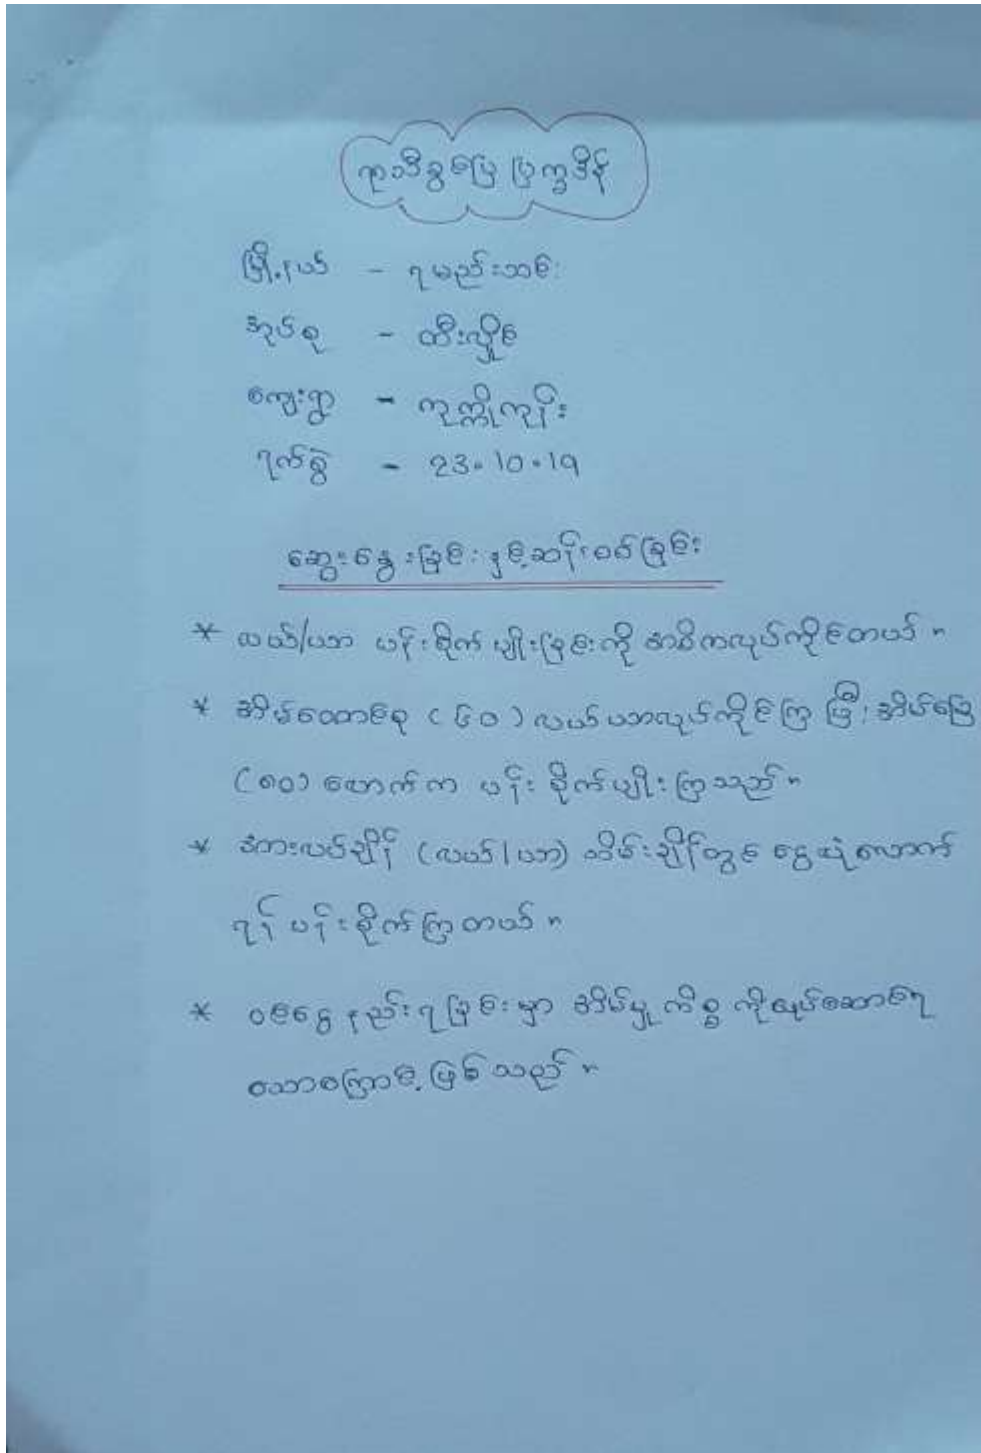 ရာသီခွင်ပြ ပြက္ခဒိန်
မြို့နယ် - ရမည်းသင်း
အုပ်စု - ထီးလှိုင်
ကျေးရွာ - ကုက္ကိုကုန်း
ရက်စွဲ - 23.10.19
ဆွေးနွေးခြင်းနှင့်ဆန်းစစ်ခြင်း
* လယ်/ယာ ပန်းစိုက်ပျိုးခြင်းကို အဓိကလုပ်ကိုင်တယ်။
* အိမ်ထောင်စု (၆၀) လယ်ယာလုပ်ကိုင်ကြပြီး အိမ်ခြေ
(၈၀) လောက်က ပန်းစိုက်ပျိုးကြသည်။
* အားလပ်ချိန် (လယ်/ယာ) သိမ်းချိန်တွင် ငွေသုံးလောက်
ရန် ပန်းစိုက်ကြတယ်။
* ဝင်ငွေနည်းရခြင်းမှာ အိမ်မှုကိစ္စကိုလုပ်ဆောင်ရ
သောကြောင့်ဖြစ်သည်။